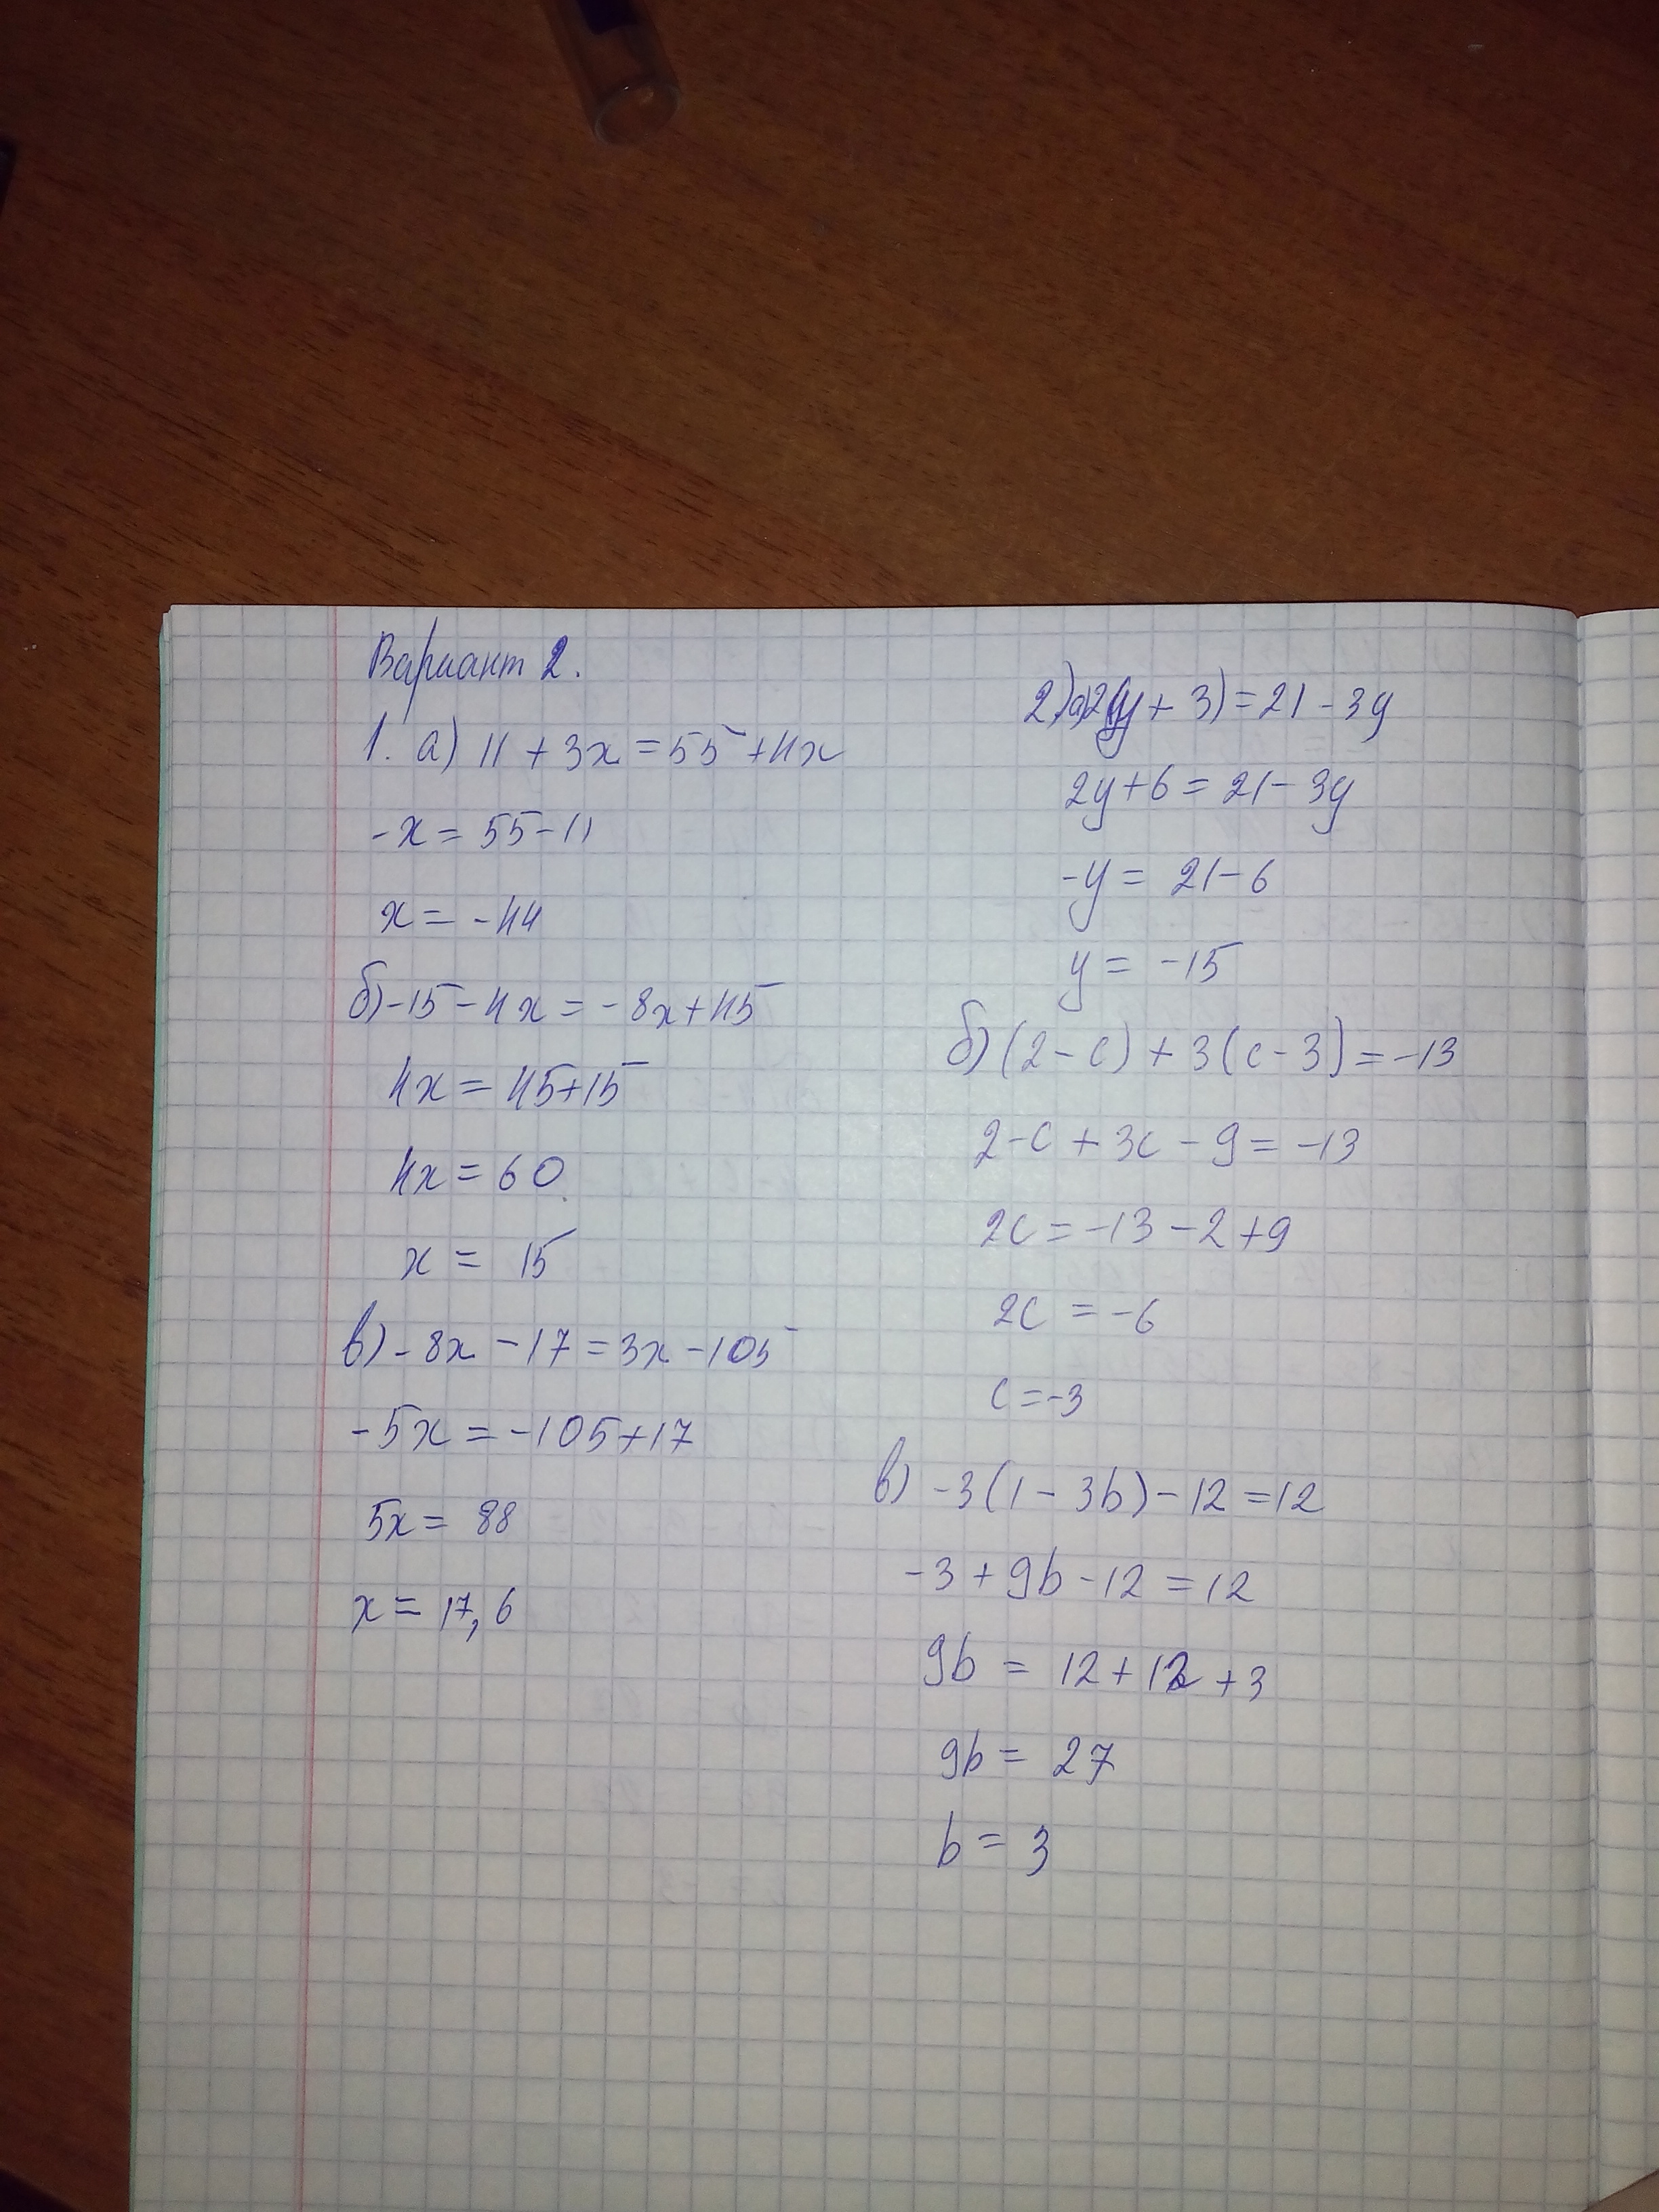 Вариант 2.
1. а) 11 + 3x = 55 + 4x
-x = 55 - 11
x = -44
б) -15 - 4x = -8x + 45
4x = 45 + 15
4x = 60
x = 15
в) -8x - 17 = 3x - 105
-5x = -105 + 17
5x = 88
x = 17,6
2) а) 2(y + 3) = 21 - 3y
2y + 6 = 21 - 3y
-y = 21 - 6
y = -15
б) (2 - c) + 3(c - 3) = -13
2 - c + 3c - 9 = -13
2c = -13 - 2 + 9
2c = -6
c = -3
в) -3(1 - 3b) - 12 = 12
-3 + 9b - 12 = 12
9b = 12 + 12 + 3
9b = 27
b = 3